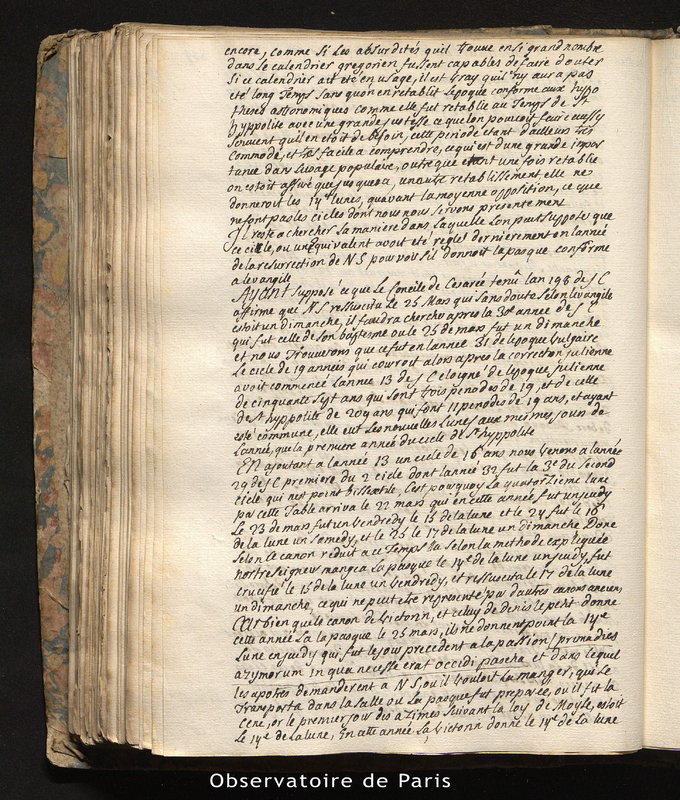 encore, comme si les absurdités quil trouve en si grand nombre
dans le calendrier gregorien fussent capables de faire douter
si ce calendrier ait eté en usage, il est vray quil ny aura pas
eté long temps sans quon en retablit lepoque conforme aux hypo
theses astronomiques comme elle fut retablie au temps de St
hyppolite avec une grande justesse ce que lon pouvoit faire aussy
souvent quil en etoit de besoin, cette periode etant dailleurs tres
commode, et tres facile a comprendre, ce qui est dune grande impor
tance dans lusage populaire, outre que etant une fois retablie
on estoit assuré que jusqua, un autre retablissement elle ne
donneroit les 14es lunes, quavant la moyenne opposition, ce que
ne font pas les cicles dont nous nous servons presentement
Il reste a chercher la maniere dans laquelle lon peut supposer que
ce cicle, ou un equivalent avoit eté reglé dernierement en lannée
de la resurrection de NS pour voir sil donnoit la pasque conforme
a levangile
Ayant supposé ce que le Concile de Cesarée tenu lan 198 de JC
affirme que NS ressuscita le 25 Mars qui sans doute selon levangile
estoit un dimanche, il faudra chercher apres la 30e année de JC
qui fut celle de son baptesme ou le 25 de mars fut un dimanche
et nous trouverons que ce fut en lannée 31 de lepoque vulgaire
Le cicle de 19 années qui couroit alors apres la correction julienne
avoit commencé lannée 13 de JC eloigné de lepoque julienne
de cinquante sept ans qui sont trois periodes de 19, et de celle
de St hyppolite de 209 ans qui font 11 periodes de 19 ans, et ayant
esté commune, elle eut les nouvelles lunes aux mesmes jours de
lannée, que la premiere année du cicle de St hyppolite
En ajoutant a lannée 13 un cicle de 16 ans nous venons a lannée
29 de JC premiere du 2 cicle dont lannée 32 fut la 3e du second
cicle qui nest point bissextile, cest pourquoy la quatorzieme lune
par cette table arriva le 22 mars qui en cette année fut un jeudy
Le 23 de mars fut un vendredy le 15 de la lune et le 24 fut le 16
de la lune un samedy, et le 25 le 17 de la lune un dimanche Donc
selon le canon reduit a ce temps la selon la methode expliquée
nostre seigneur mangea la pasque le 14e de la lune un jeudy, fut
crucifié le 15 de la lune un vendredy, et ressuscita le 17 de la lune
un dimanche, ce qui ne peut etre representé par dautres canons anciens
Car bien que le canon de Victorin, et celuy de denis le petit donne
cette année la la pasque le 25 mars, ils ne donnent point la 14e
Lune en jeudy qui fut le jour precedent a la passion / prima dies
azymorum in qua necesse erat occidi pascha et dans lequel
les apotres demanderent a NS, ou il vouloit la manger, qui se
transporta dans la salle ou la pasque fut preparée, ou il fit la
cene, or le premier jour des azimes suivant la loy de Moyse, estoit
Le 14e de la lune, En cette année la Victorin donne le 14e de la lune
Observatoire de Paris